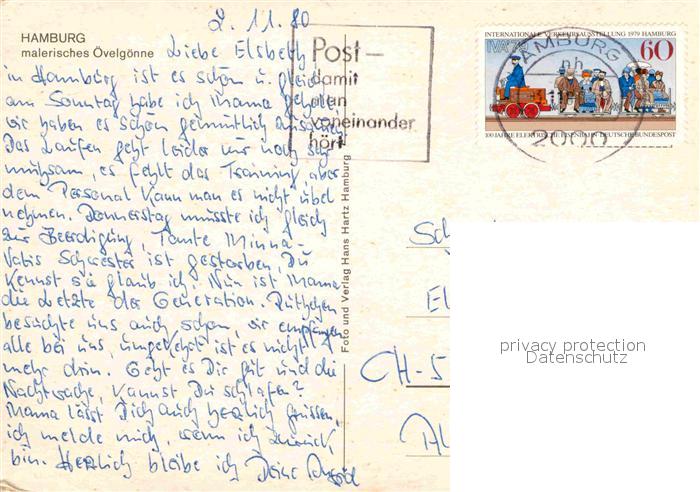 2. 11. 80
HAMBURG
malerisches Övelgönne
Liebe Elsbeth
in Hamburg ist es schön u. gleich
am Sonntag habe ich Mama geholt
wir haben es schön gemütlich
Das Laufen geht leider nur noch sehr
mühsam, es fehlt das Training aber
dem Personal kann man es nicht übel
nehmen. Donnerstag musste ich gleich
zur Beerdigung, Tante Minna-
Vatis Schwester ist gestorben, Du
kennst sie glaub ich. Nun ist Mama
die Letzte der Generation.
besuchte uns auch schon, wir empfangen
alle bei uns, umgekehrt ist es nicht
mehr drin. Geht es Dir gut und die
Nachtwache, kannst Du schlafen?
Mama lässt Dich auch herzlich grüssen,
ich melde mich, wenn ich zurück
bin. Herzlich bleibe ich Deine
Foto und Verlag Hans Hartz Hamburg
Post –
damit
man
voneinander
hört
INTERNATIONALE VERKEHRSAUSSTELLUNG 1979 HAMBURG
IVA79
60
100 JAHRE ELEKTRISCHE EISENBAHN DEUTSCHE BUNDESPOST
HAMBURG
nh
2000
Sch
El
CH-5
privacy protection
Datenschutz